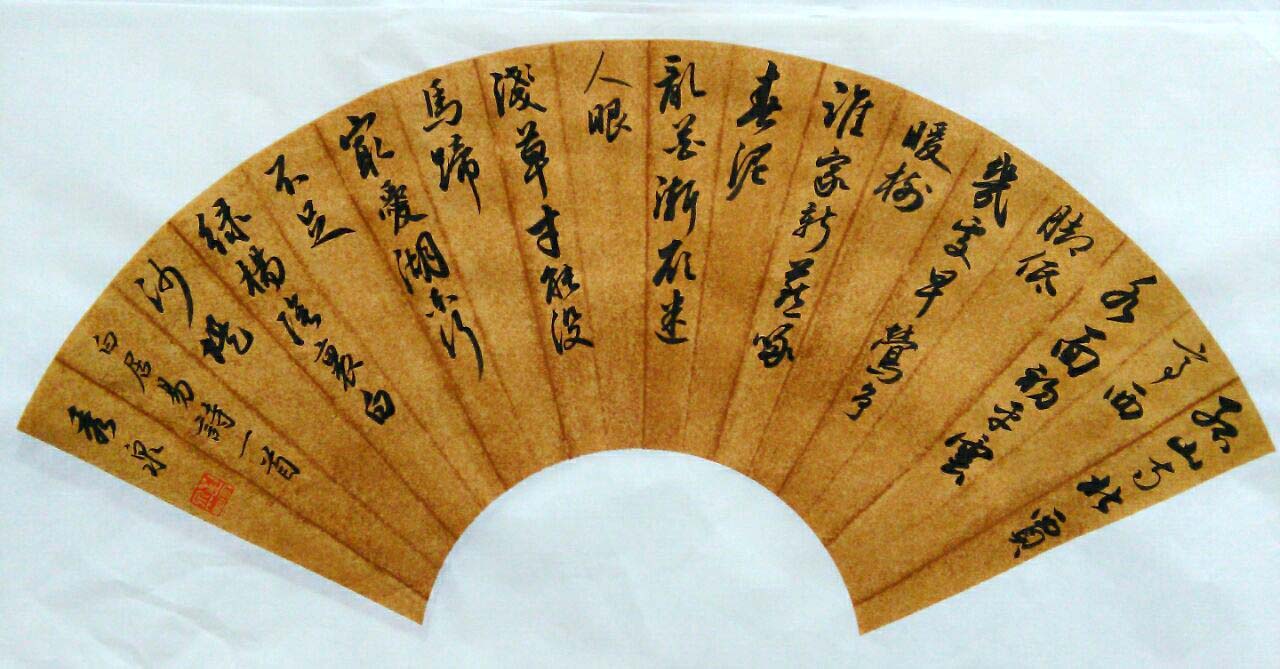 孤山寺北賈
亭西
水面初平雲
脚低
幾處早鶯爭
暖樹
誰家新燕啄
春泥
亂花漸欲迷
人眼
淺草才能没
馬蹄
最愛湖東行
不足
緑楊陰裏白
沙堤
白居易詩一首
秀泉